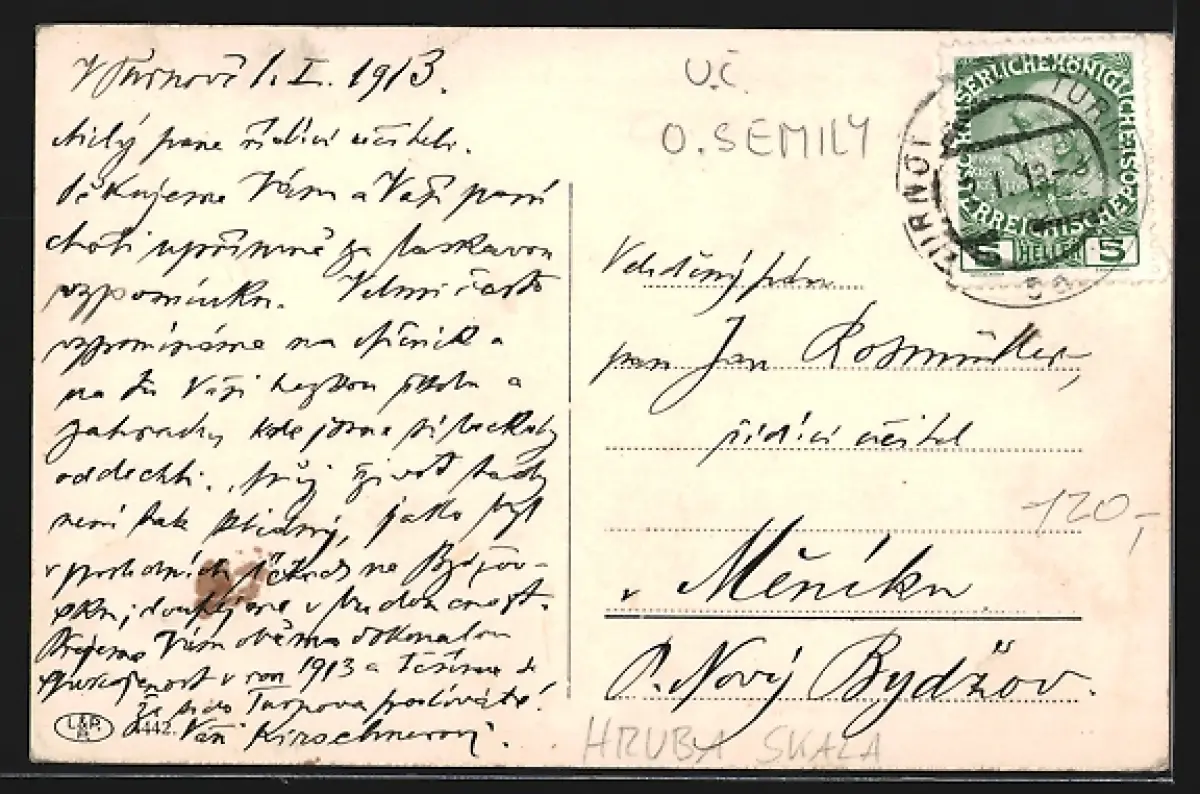 V Turnově 1. I. 1913.
Milý pane řídící učiteli.
Děkujeme Vám a Vaší paní
choti upřímně za laskavou
vzpomínku. Velmi často
vzpomínáme na Měník a
na tu Vaši hezkou školu a
zahradu, kde jsme si
oddechli. Můj život tady
není tak klidný, jako byl
v posledních létech na Bydžov-
sku; doufejme v budoucnost.
Přejeme Vám oběma dokonalou
spokojenost v roce 1913 a těšíme se
že se do Turnova podíváte!
Vaši Kirschnerovi.
L.&P.
P.
1442.
U.Č.
O. SEMILY
KAISERLICHE KÖNIGLICHE
ÖSTERREICHISCHE POST
5 HELLER 5
TURNOV
TURNAU
Velectěný pán
pan Jan Rosmüller,
řídící učitel
120,-
v Měníku
P. Nový Bydžov.
HRUBA SKALA